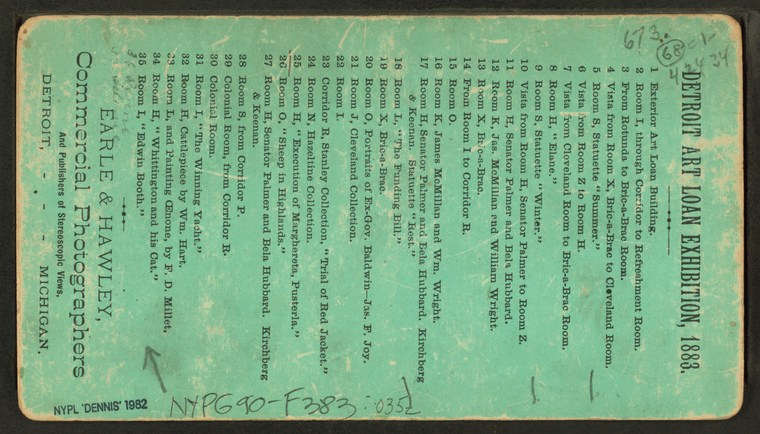 DETROIT ART LOAN EXHIBITION, 1883.
1 Exterior Art Loan Building.
2 Room I, through Corridor to Refreshment Room.
3 From Rotunda to Bric-a-Brac Room.
4 Vista from Room X, Bric-a-Brac to Cleveland Room.
5 Room S, Statuette "Summer."
6 Vista from Room Z to Room H.
7 Vista from Cleveland Room to Bric-a-Brac Room.
8 Room H, "Elane."
9 Room S, Statuette "Winter."
10 Vista from Room H, Senator Palmer to Room Z.
11 Room H, Senator Palmer and Bela Hubbard.
12 Room K, Jas. McMillan and William Wright.
13 Room X, Bric-a-Brac.
14 From Room I to Corridor R.
15 Room O.
16 Room K, James McMillan and Wm. Wright.
17 Room H, Senator Palmer and Bela Hubbard. Kirchberg
& Keenan. Statuette "Rest."
18 Room L, "The Funding Bill."
19 Room X, Bric-a-Brac.
20 Room O, Portraits of Ex-Gov Baldwin—Jas. F. Joy.
21 Room J, Cleveland Collection.
22 Room I.
23 Corridor R, Stanley Collection, "Trial of Red Jacket."
24 Room N, Hazeltine Collection.
25 Room H, "Execution of Marghereta, Pusterla."
26 Room O, "Sheep in Highlands."
27 Room H, Senator Palmer and Bela Hubbard. Kirchberg
& Keenan.
28 Room S, from Corridor P.
29 Colonial Room, from Corridor R.
30 Colonial Room.
31 Room I, "The Winning Yacht."
32 Room H, Cattlepiece by Wm. Hart.
33 Room L, and Painting Œnone, by F. D. Millet,
34 Room H, "Whittington and his Cat."
35 Room I, "Edwin Booth."
EARLE & HAWLEY,
Commercial Photographers
And Publishers of Stereoscopic Views,
DETROIT, - - - MICHIGAN.
673.
68 - 1
NYPL 'DENNIS' 1982
NYPG90-F383 : 0352